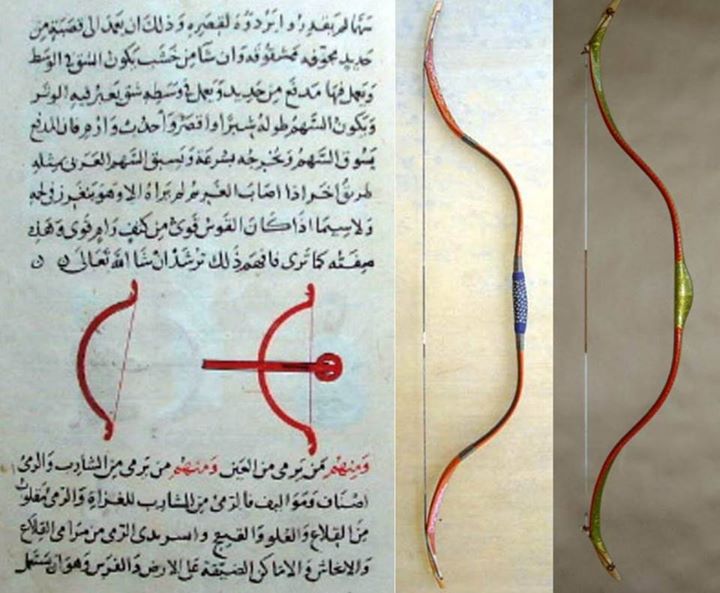 سهما لم يقدروا ان يردوه لقصره وذلك ان يعمد الى قصبة من
حديد مجوفه مشقوقه وان شا من خشب يكون الشق في الوسط
ويعمل فيها مدفع من حديد ويعمل في وسطه شق يعبر فيه الوتر
ويكون السهم طوله شبرا واقصر واحدب وارم فان المدفع
يسوق السهم ويخرجه بسرعة ويسبق السهم العربى مثله
طريق اخر اذا اصاب الغريم لم يراه الا وهو ينغرز في لحمه
ولا سيما اذا كان القوس قوى من كتف رام قوى وهذه
صفته كما ترى فافهم ذلك ترشد ان شا الله تعالى
ومنهم من يرمى من العين ومنهم من يرمى من الشارب والرمى
اصناف ومواليف فالرمى من الشارب للغزاة والرمى
من القلاع والعلو والقيح واسر يدى الرمى من مرامى القلاع
والانخاش والاماكن الضيقة على الارض والفرس وهو ان تستمل